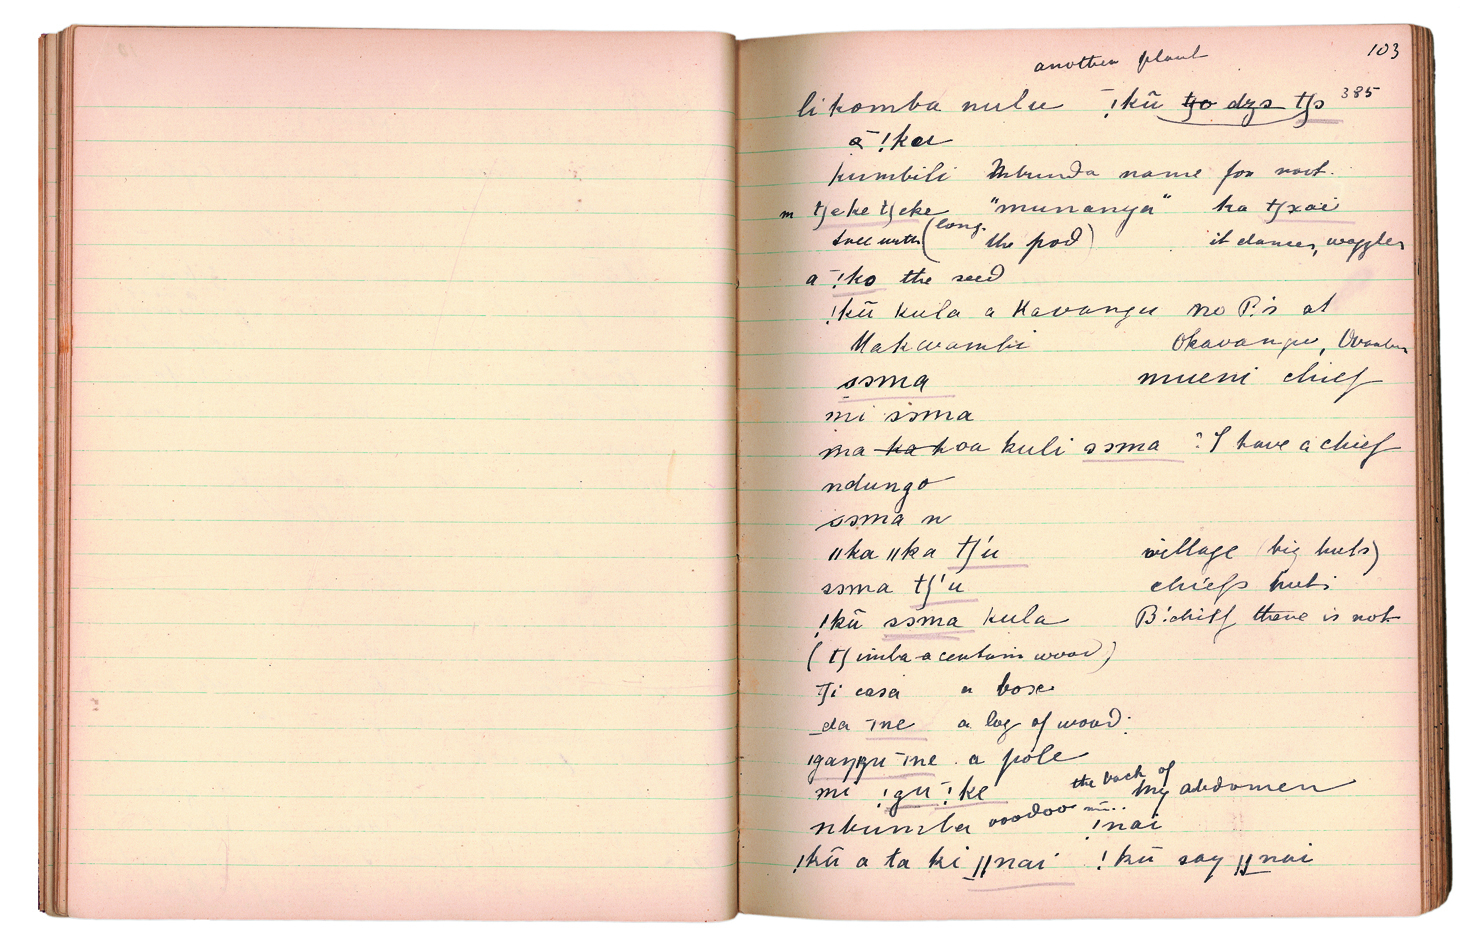 103
another plant
likomba nulu ˉ!kū t̶ʃo̶ dzɔ tʃɔ 385
ā !ka
kumbili Mbunda name for root.
m tʃeke tʃeke "munanya" ka tʃxai
tree with (long the pod) it dances, waggles
a ˉ!ko the seed
!kū kula a Kavangu no B's at
Makwambi Okavangu,
sɔma mueni chief
mi sɔma
ma k̶a̶ koa kuli sɔma ? I have a chief
ndungo
sɔma n
ǁka ǁka tʃ'u village (big huts)
sɔma tʃ'u chiefs huts
!kū sɔma kula B. chief there is not
(tʃimba a certain wood)
tʃi casa a box
_da ˉme a log of wood.
ˉme a pole
mi !gū ˉ!ke the back of my abdomen
voodoo !nai
!kū a ta ki ǁnai !kū say ǁnai